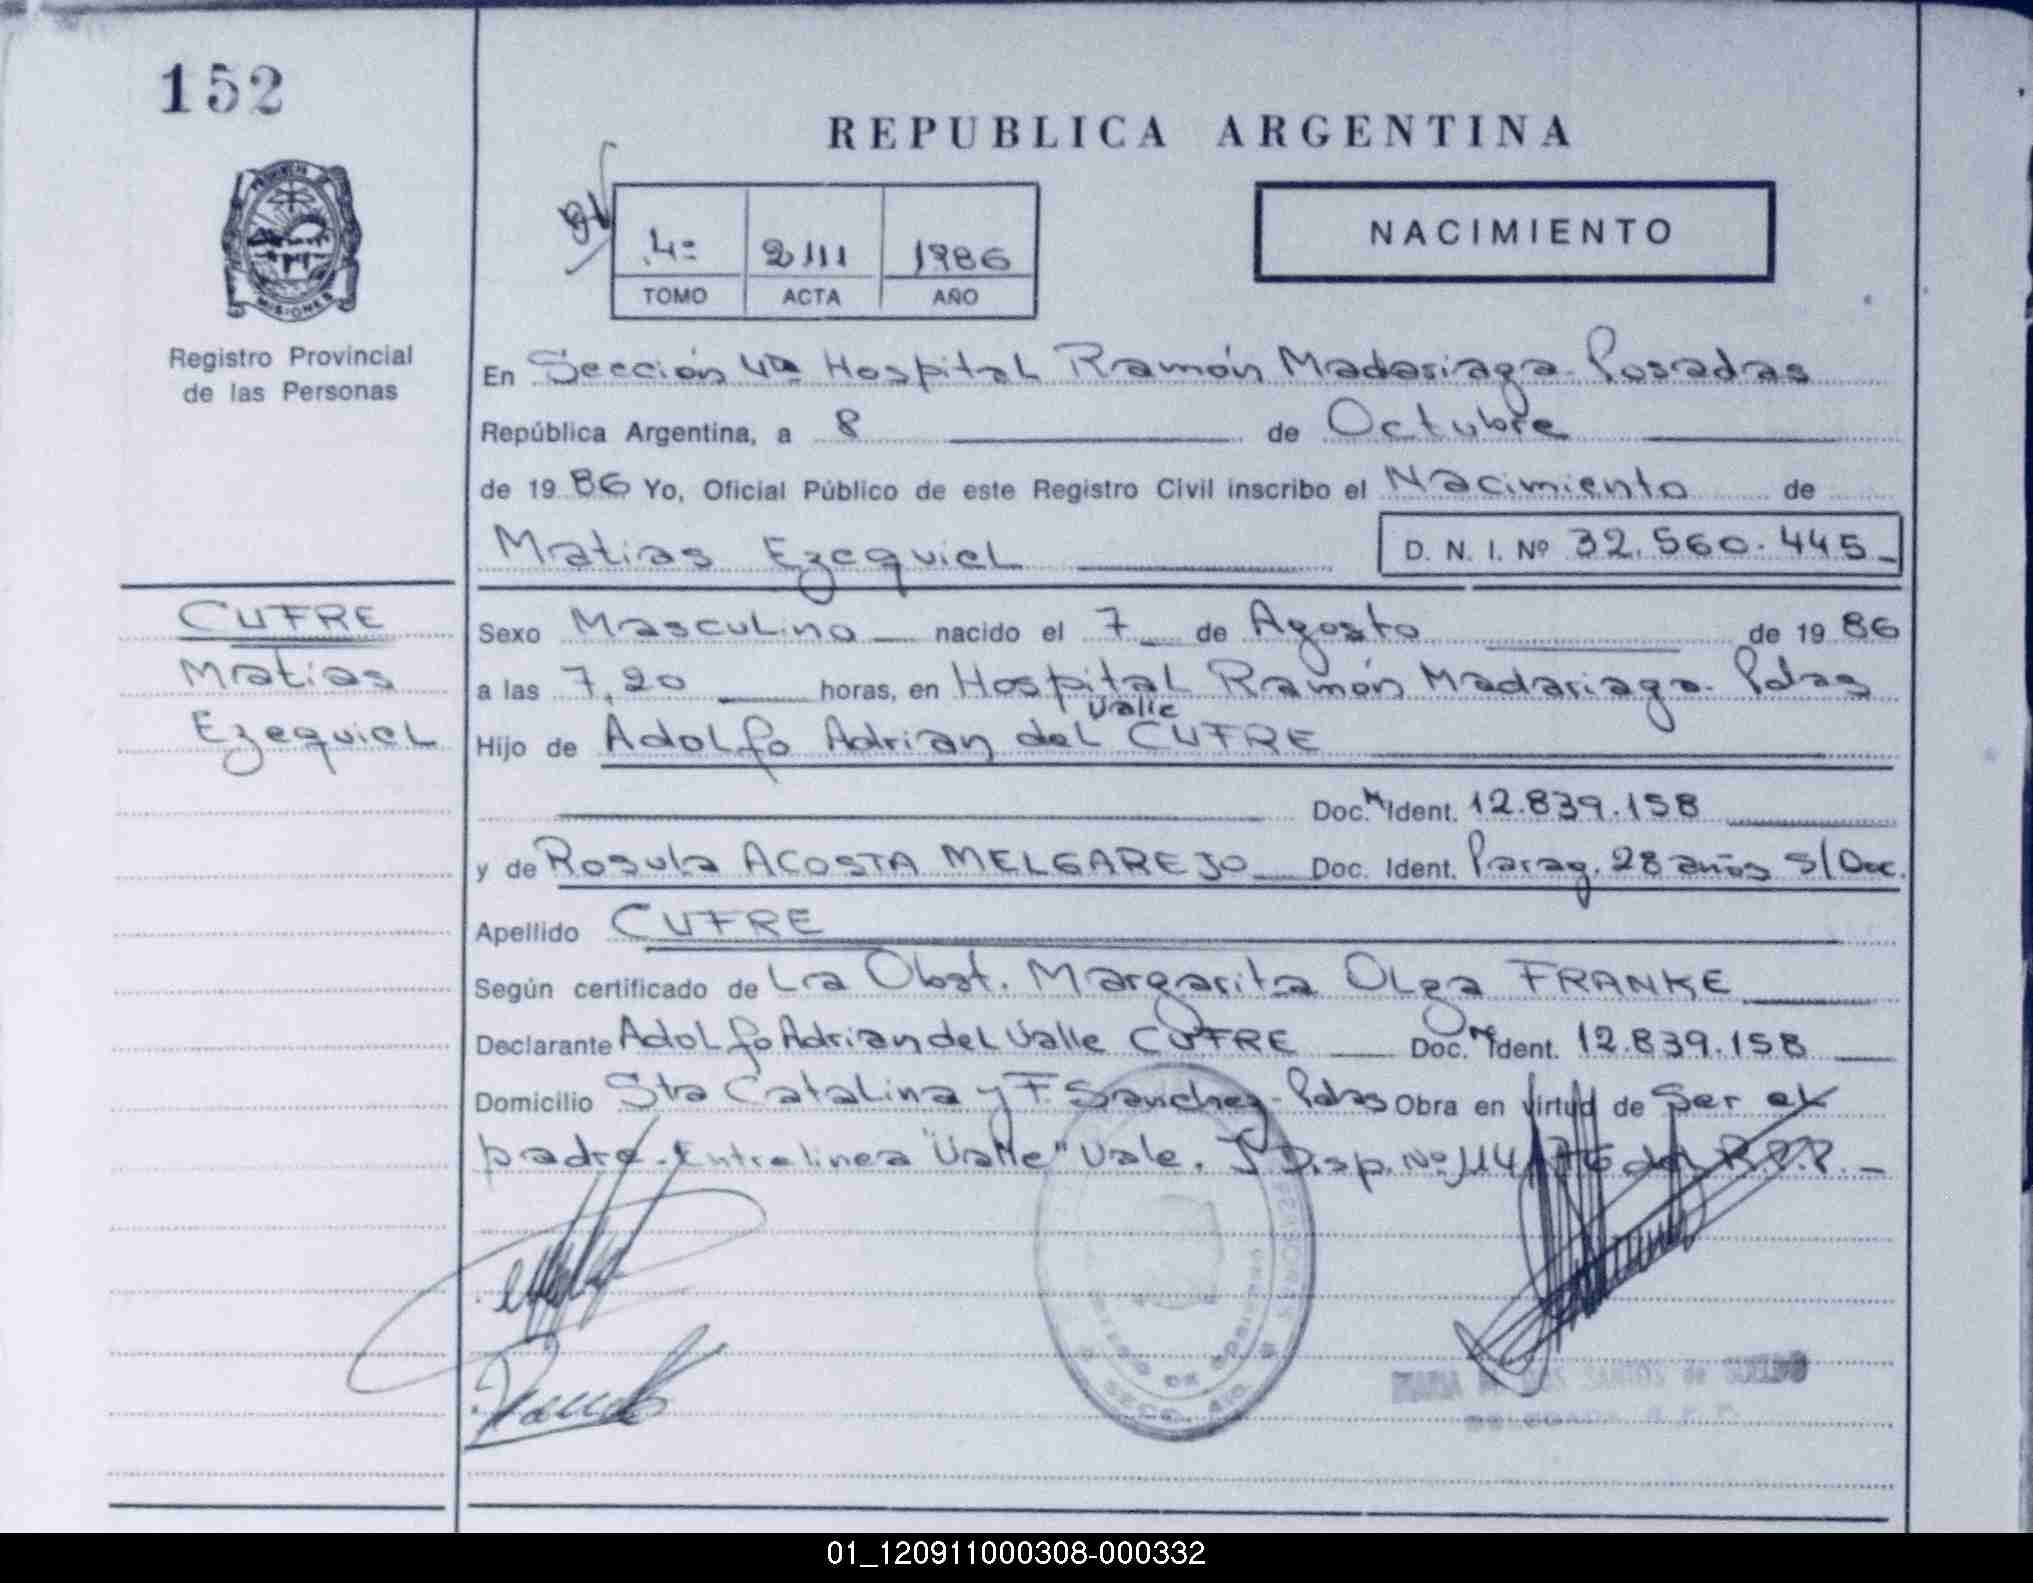 152
REPUBLICA ARGENTINA
PROVINCIA DE
MISIONES
Registro Provincial
de las Personas
4º 2111 1986
TOMO ACTA AÑO
NACIMIENTO
En Sección 4ta Hospital Ramón Madariaga - Posadas
República Argentina, a 8 de Octubre
de 1986 Yo, Oficial Público de este Registro Civil inscribo el Nacimiento de
Matias Ezequiel D. N. I. Nº 32.560.445
CUFRE
Matías
Ezequiel
Sexo Masculino nacido el 7 de Agosto de 1986
a las 7,20 horas, en Hospital Ramón Madariaga - Pdas
Valle
Hijo de Adolfo Adrian del CUFRE
Doc. Ident. 12.839.158
y de Rosula ACOSTA MELGAREJO Doc. Ident. Parag. 28 años S/Doc.
Apellido CUFRE
Según certificado de La Obst. Margarita Olga FRANKE
Declarante Adolfo Adrian del Valle CUFRE Doc. Ident. 12.839.158
Domicilio Sta Catalina y F. Sanchez - Pdas Obra en virtud de Ser el
padre. Entrelinea "Valle" Vale. Disp. Nº 114/76 del R.P.P.
SECC. 4ta.
MARIA DOS SANTOS de
DELEGADA R.P.P.
01_120911000308-000332